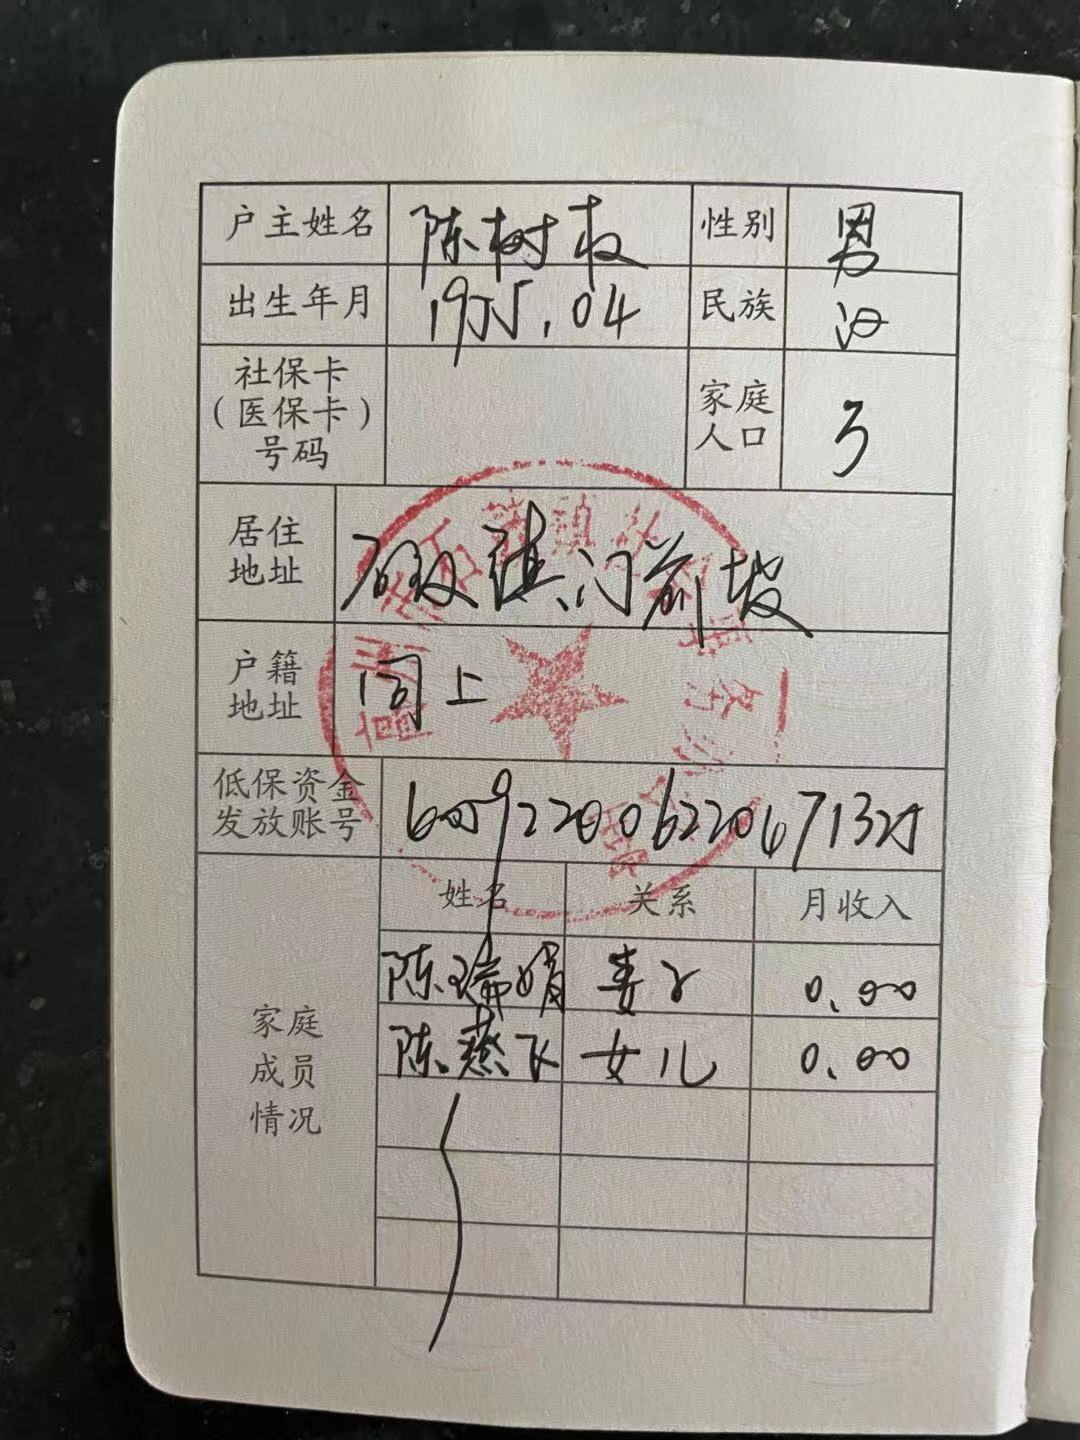 户主姓名 陈树枝 性别 男
出生年月 1955.04 民族 汉
社保卡（医保卡）号码 家庭人口 3
居住地址 镇门前坡
户籍地址 同上
低保资金发放账号
家庭成员情况
姓名 关系 月收入
陈瑞娟 妻子 0.00
陈燕飞 女儿 0.00